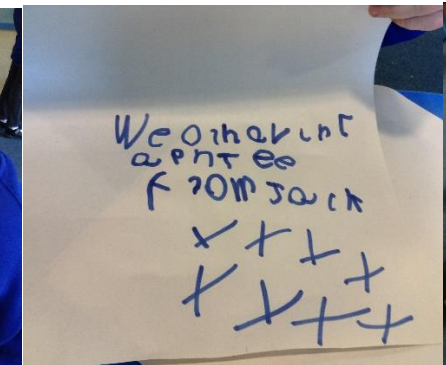 We oihavint
a pnt ee
from Jack
x x x x
x x x x